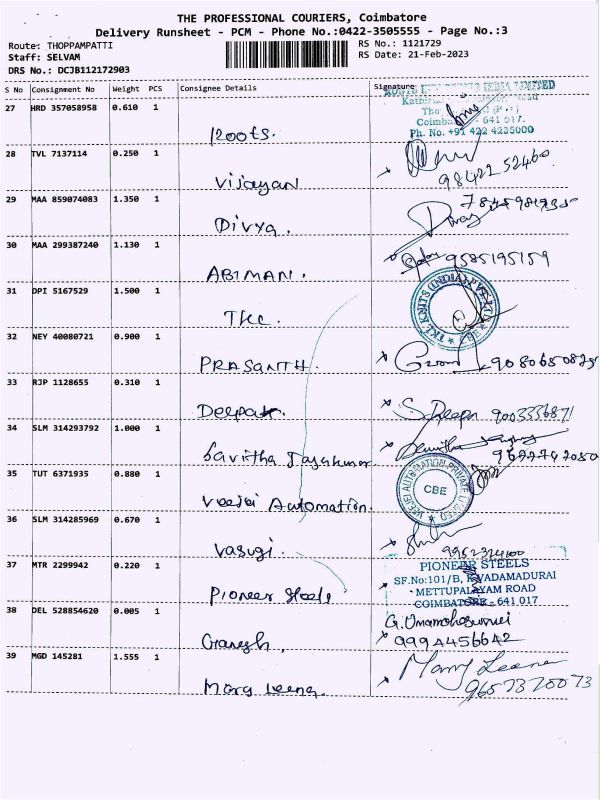 THE PROFESSIONAL COURIERS, Coimbatore
Delivery Runsheet - PCM - Phone No.:0422-3505555 - Page No.:3
Route: THOPPAMPATTI
Staff: SELVAM
DRS No.: DCJB112172903
RS No.: 1121729
RS Date: 21-Feb-2023
S No Consignment No Weight PCS Consignee Details Signature
27 HRD 357058958 0.610 1
Ph. No. +91 422 4235000
28 TVL 7137114 0.250 1
Vijayan 98422 52460
29 MAA 859074083 1.350 1
Divya.
30 MAA 299387240 1.130 1
ABIMAN. 9585195159
31 DPI 5167529 1.500 1
TKL KNITS (INDIA) PVT LTD
CBE
32 NEY 40080721 0.900 1
PRASANTH.
33 RJP 1128655 0.310 1
Deepak.
34 SLM 314293792 1.000 1
Savitha Jayakumar
35 TUT 6371935 0.880 1
Veejei Automation.
VEEJEI AUTOMATION PRIVATE LIMITED
CBE
36 SLM 314285969 0.670 1
Vasugi.
37 MTR 2299942 0.220 1
Pioneer Steels
PIONEER STEELS
SF.No:101/B, K.VADAMADURAI
METTUPALAYAM ROAD
COIMBATORE - 641 017
38 DEL 528854620 0.005 1
Ganesh. 9994456642
39 MGD 145281 1.555 1
Mary Leena. Mary Leena
9657370073